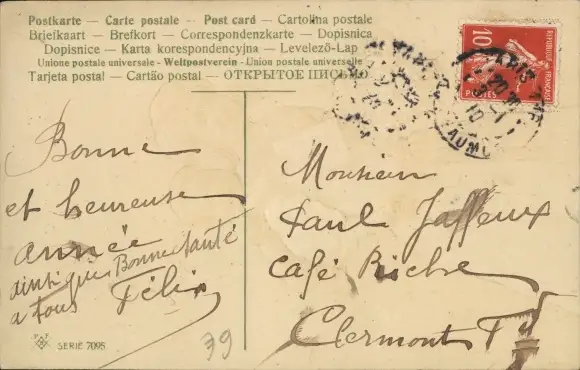 Postkarte — Carte postale — Post card — Cartolina postale
Briefkaart — Brefkort — Correspondenzkarte — Dopisnica
Dopisnice — Karta korespondencyjna — Levelező-Lap
Unione postale universale - Weltpostverein - Union postale universelle
Tarjeta postal — Cartão postal — ОТКРЫТОЕ ПИСЬМО
10
REPUBLIQUE FRANÇAISE
POSTES
Bonne
et heureuse
année
ainsi que Bonne Santé
a tous Félix
Monsieur
Paul Jaffeux
Café Riche
Clermont Fd
SERIE 7095
39